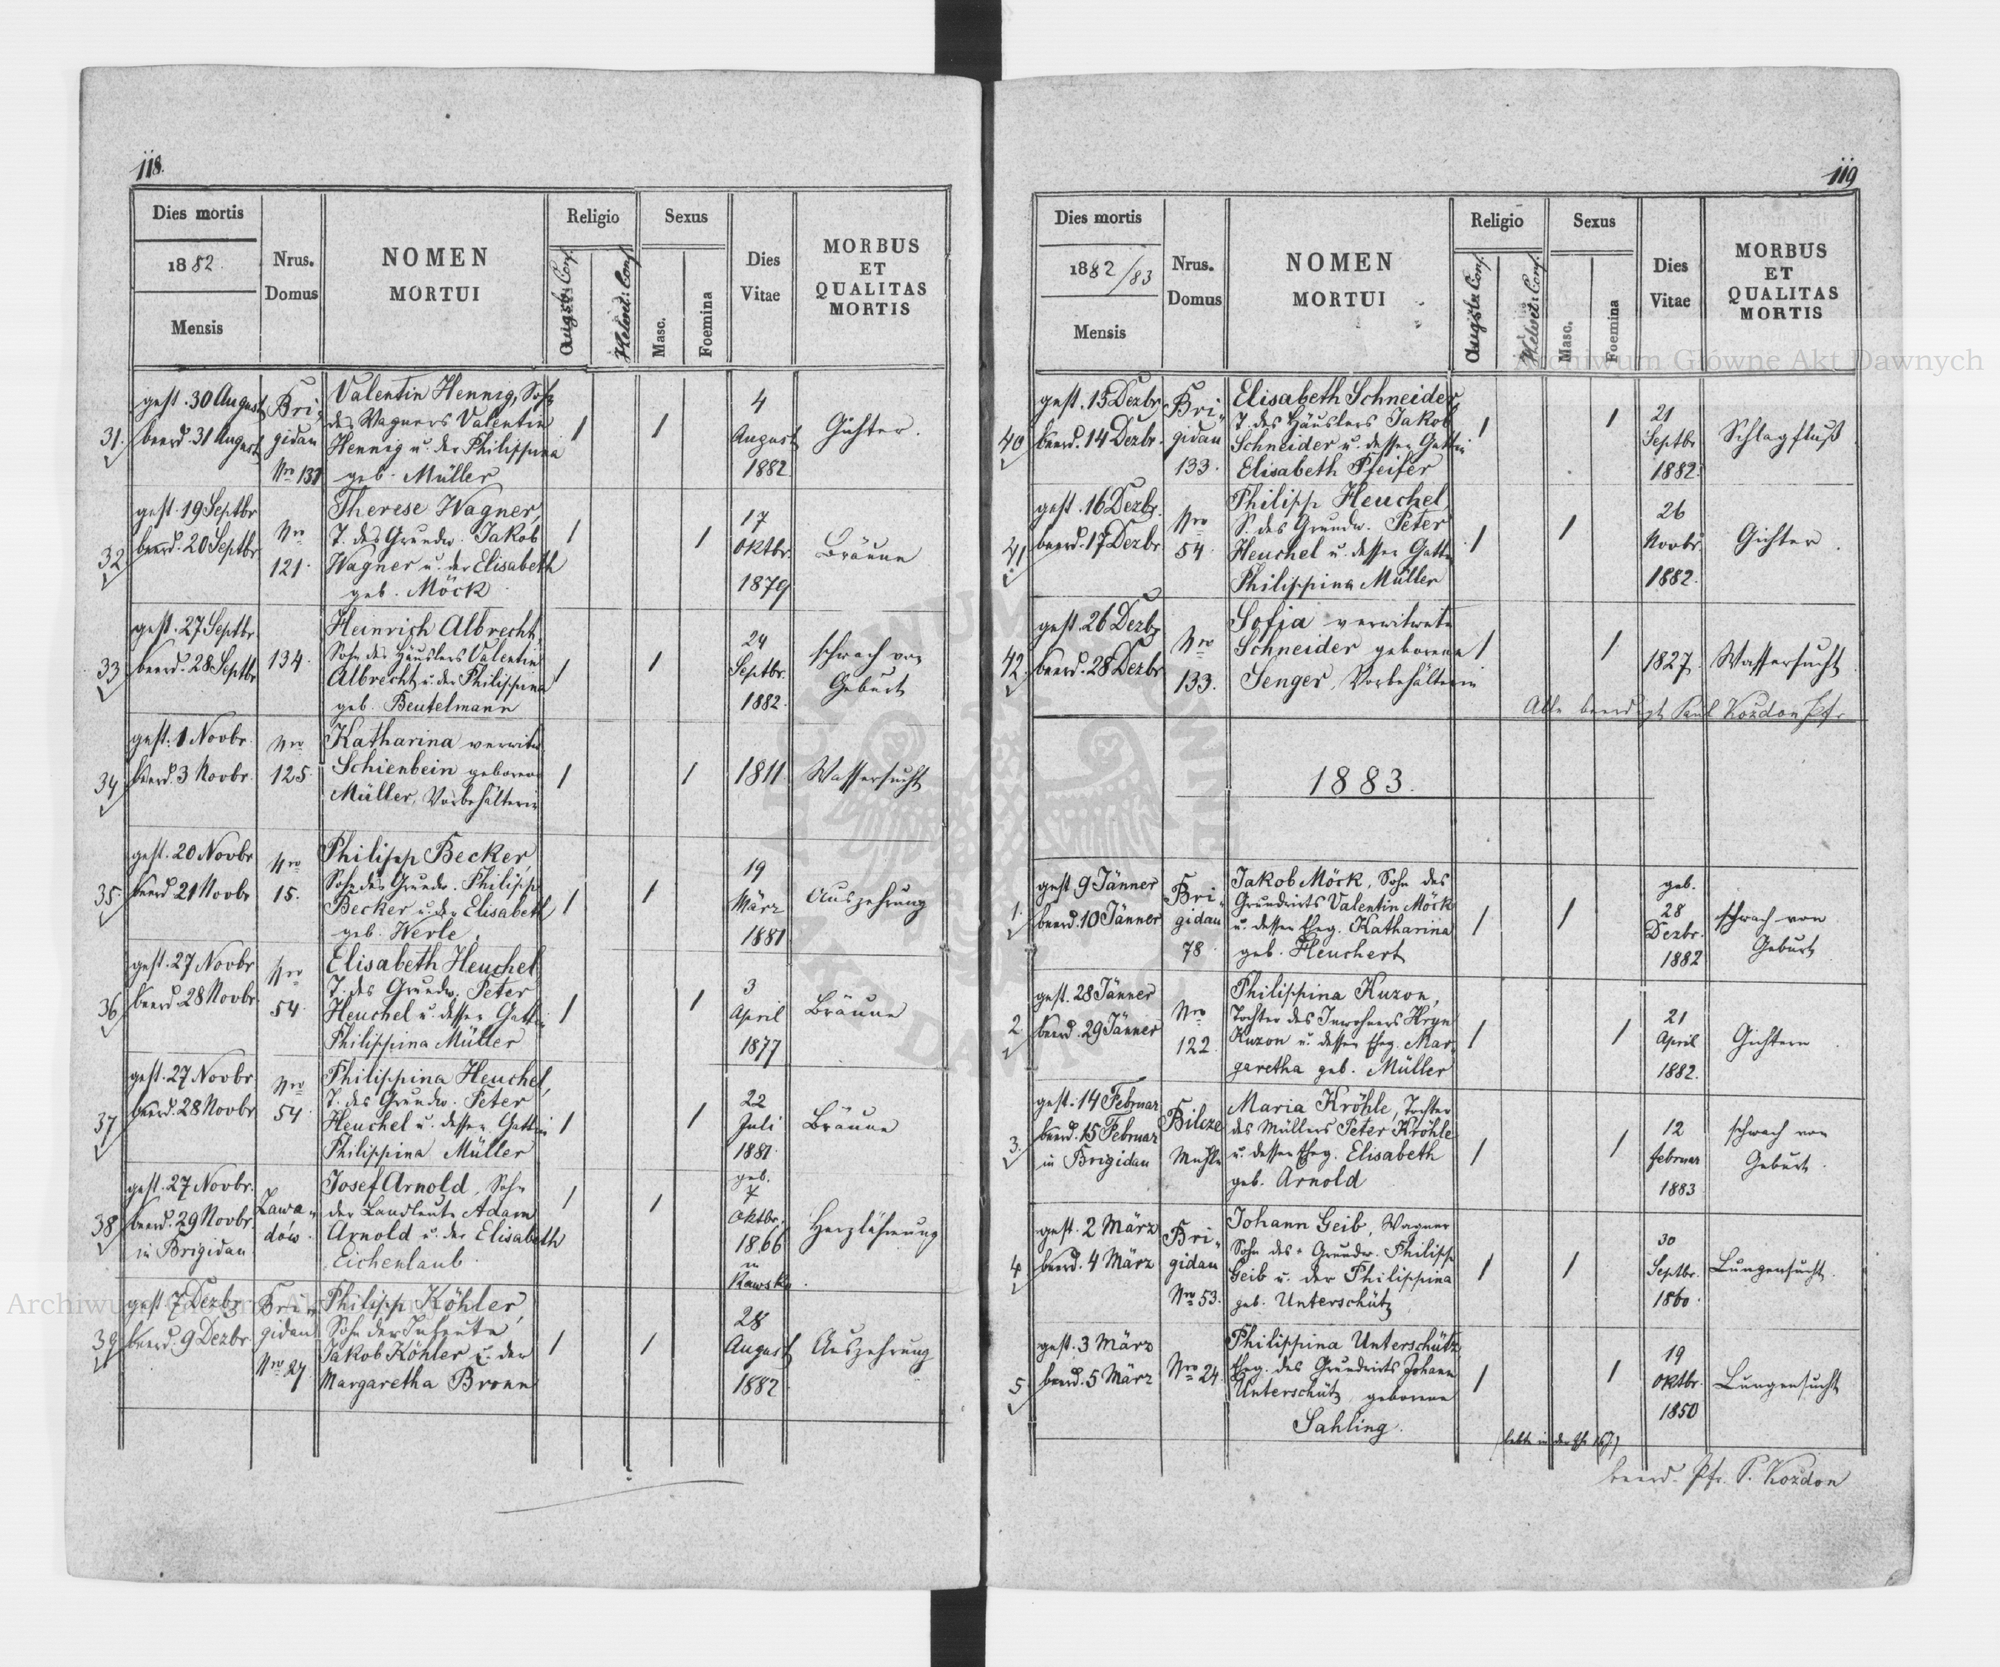 118.
Dies mortis
1882.
Mensis
Nrus.
Domus
NOMEN
MORTUI
Religio
Augsb: Conf.
Helvet: Conf.
Sexus
Masc.
Foemina
Dies
Vitae
MORBUS
ET
QUALITAS
MORTIS
31.
gest. 30 August
beerd. 31 August
Bri-
gidau
Nro 137
Valentin Hennig, Sohn
des Wagners Valentin
Hennig u. der Philippina
geb. Müller
4
August
1882
Gichter.
32
gest. 19 Septbr
beerd. 20 Septbr
Nro
121.
Therese Wagner
T. des Grundw. Jakob
Wagner u. der Elisabeth
geb. Möck
17
Oktbr.
1879
Bräune
33
gest. 27 Septbr
beerd. 28 Septbr
134.
Heinrich Albrecht,
Sohn des Häuslers Valentin
Albrecht u. der Philippina
geb. Beutelmann
24
Septbr.
1882.
schwach von
Geburt
34
gest. 1 Novbr.
beerd. 3 Novbr.
Nro
125.
Katharina verwitw.
Schienbein geborene
Müller, Vorbehälterin
1811.
Wassersucht
35.
gest. 20 Novbr
beerd 21 Novbr
Nro
15.
Philipp Becker,
Sohn des Grundw. Philipp
Becker u. der Elisabeth
geb. Werle.
19
März
1881
Auszehrung
36
gest. 27 Novbr
beerd 28 Novbr
Nro
54.
Elisabeth Heuchel
T. des Grundw. Peter
Heuchel u. dessen Gattin
Philippina Müller
3
April
1877
Bräune
37
gest. 27 Novbr
beerd. 28 Novbr
Nro
54.
Philippina Heuchel,
T. des Grundw. Peter
Heuchel u. dessen Gattin
Philippina Müller
22
Juli
1881.
Bräune
38
gest. 27 Novbr.
beerd. 29 Novbr.
in Brigidau
Zawa-
dów.
Josef Arnold, Sohn
der Landleute Adam
Arnold u. der Elisabeth
Eichenlaub.
geb.
7
Oktbr.
1866
in
Rawska.
Herzlähmung
39
gest 7 Dezbr
beerd. 9 Dezbr
Bri-
gidau
Nro 27
Philipp Köhler,
Sohn der Inleute
Jakob Köhler u. der
Margaretha Bronn
28
August
1882
Auszehrung
119
Dies mortis
1882/83
Mensis
Nrus.
Domus
NOMEN
MORTUI
Religio
Augsb: Conf.
Helvet: Conf.
Sexus
Masc.
Foemina
Dies
Vitae
MORBUS
ET
QUALITAS
MORTIS
Archiwum Główne Akt Dawnych
40
gest. 13 Dezbr
beerd. 14 Dezbr.
Bri-
gidau
133.
Elisabeth Schneider,
T. des Häuslers Jakob
Schneider u. dessen Gattin
Elisabeth Pfeifer
21
Septbr
1882.
Schlagfluß
41
gest. 16 Dezbr.
beerd. 17 Dezbr
Nro
54.
Philipp Heuchel,
S. des Grundw. Peter
Heuchel u. dessen Gattin
Philippina Müller
26
Novbr.
1882.
Gichter.
42.
gest. 26 Dezbr
beerd. 28 Dezbr
Nro
133.
Sofia verwitwete
Schneider geborene
Senger, Vorbehälterin
1827.
Wassersucht
Alle beerdigt Paul Kozdon Pfr
1883.
1.
gest 9 Jänner
beerd. 10 Jänner
Bri-
gidau
78.
Jakob Möck, Sohn des
Grundwirts Valentin Möck
u. dessen Eheg. Katharina
geb. Heuchert
geb.
28
Dezbr.
1882
schwach von
Geburt
2
gest. 28 Jänner
beerd. 29 Jänner
Nro
122.
Philippina Kuzon,
Tochter des Inwohners Hryn
Kuzon u. dessen Eheg. Mar-
garetha geb. Müller
21
April
1882.
Gichtern
3.
gest. 14 Februar
beerd. 15 Februar
in Brigidau
Bilcze
Mühle
Maria Kröhle, Tochter
des Müllers Peter Kröhle
u. dessen Eheg. Elisabeth
geb. Arnold
12
februar
1883
schwach von
Geburt.
4
gest. 2 März
beerd. 4 März
Bri-
gidau
Nro 53.
Johann Geib, Wagner
Sohn des + Grundw. Philipp
Geib u. der Philippina
geb. Unterschütz
30
Septbr.
1860.
Lungensucht.
5
gest. 3 März
beerd. 5 März
Nro 24.
Philippina Unterschütz,
Eheg. des Grundwirts Johann
Unterschütz geborene
Sahling.
19
Oktbr.
1850
Lungensucht
lebte in der Ehe
beerd. Pfr. P. Kozdon